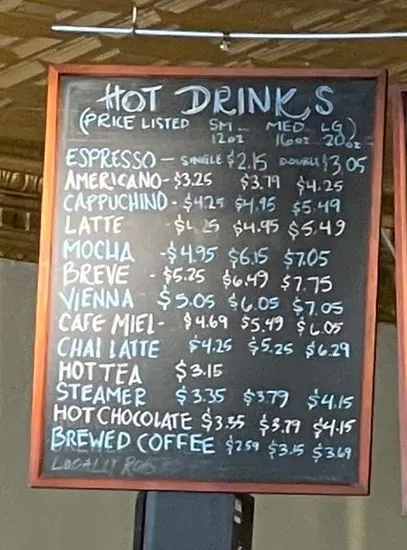 HOT DRINKS
(PRICE LISTED SM 12oz MED 16oz LG 20oz)
ESPRESSO - SINGLE $2.15 DOUBLE $3.05
AMERICANO - $3.25 $3.79 $4.25
CAPPUCHINO - $4.25 $4.95 $5.49
LATTE - $4.25 $4.95 $5.49
MOCHA - $4.95 $6.15 $7.05
BREVE - $5.25 $6.49 $7.75
VIENNA $5.05 $6.05 $7.05
CAFE MIEL - $4.69 $5.49 $6.05
CHAI LATTE $4.25 $5.25 $6.29
HOT TEA $3.15
STEAMER $3.35 $3.79 $4.15
HOT CHOCOLATE $3.35 $3.79 $4.15
BREWED COFFEE $2.59 $3.15 $3.69
LOCALLY